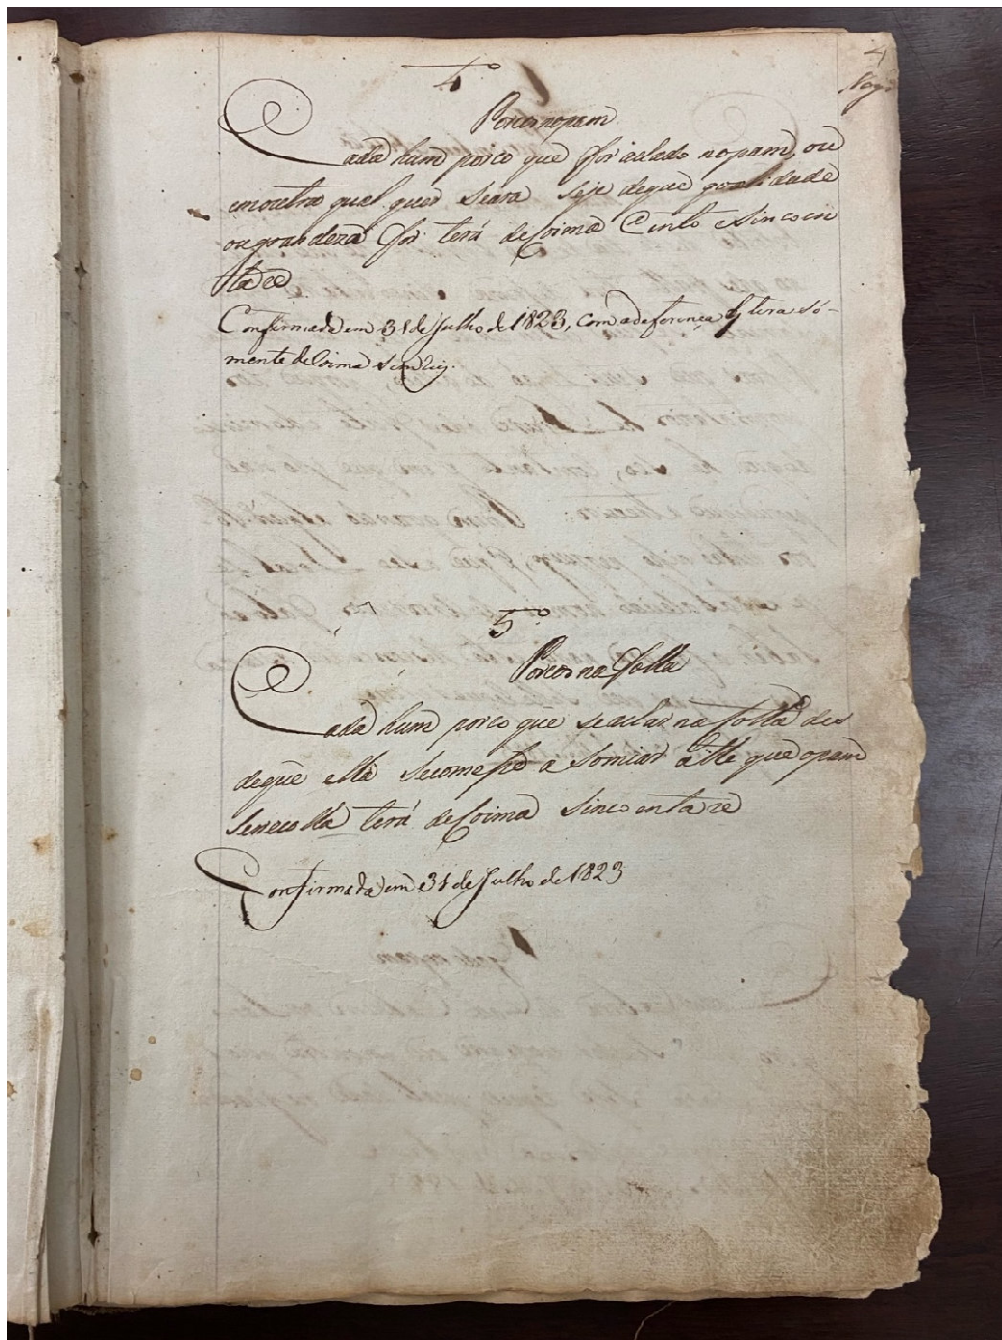 4
4º
Porcos no pam
Cada hum porco que for achado no pam, ou
em outra qual quer seara seje de que qualidade
ou grandeza for terá de Coima Cento e sincoen
ta re
Confirmada em 31 de Julho de 1823, com a deferença q̃ tera só-
mente de Coima
5º
Porcos na folha
Cada hum porco que se achar na folha des
de que ella se comesse a Somear athe que o pam
se recolha terá de Coima sincoenta re
Confirmada em 31 de Julho de 1823